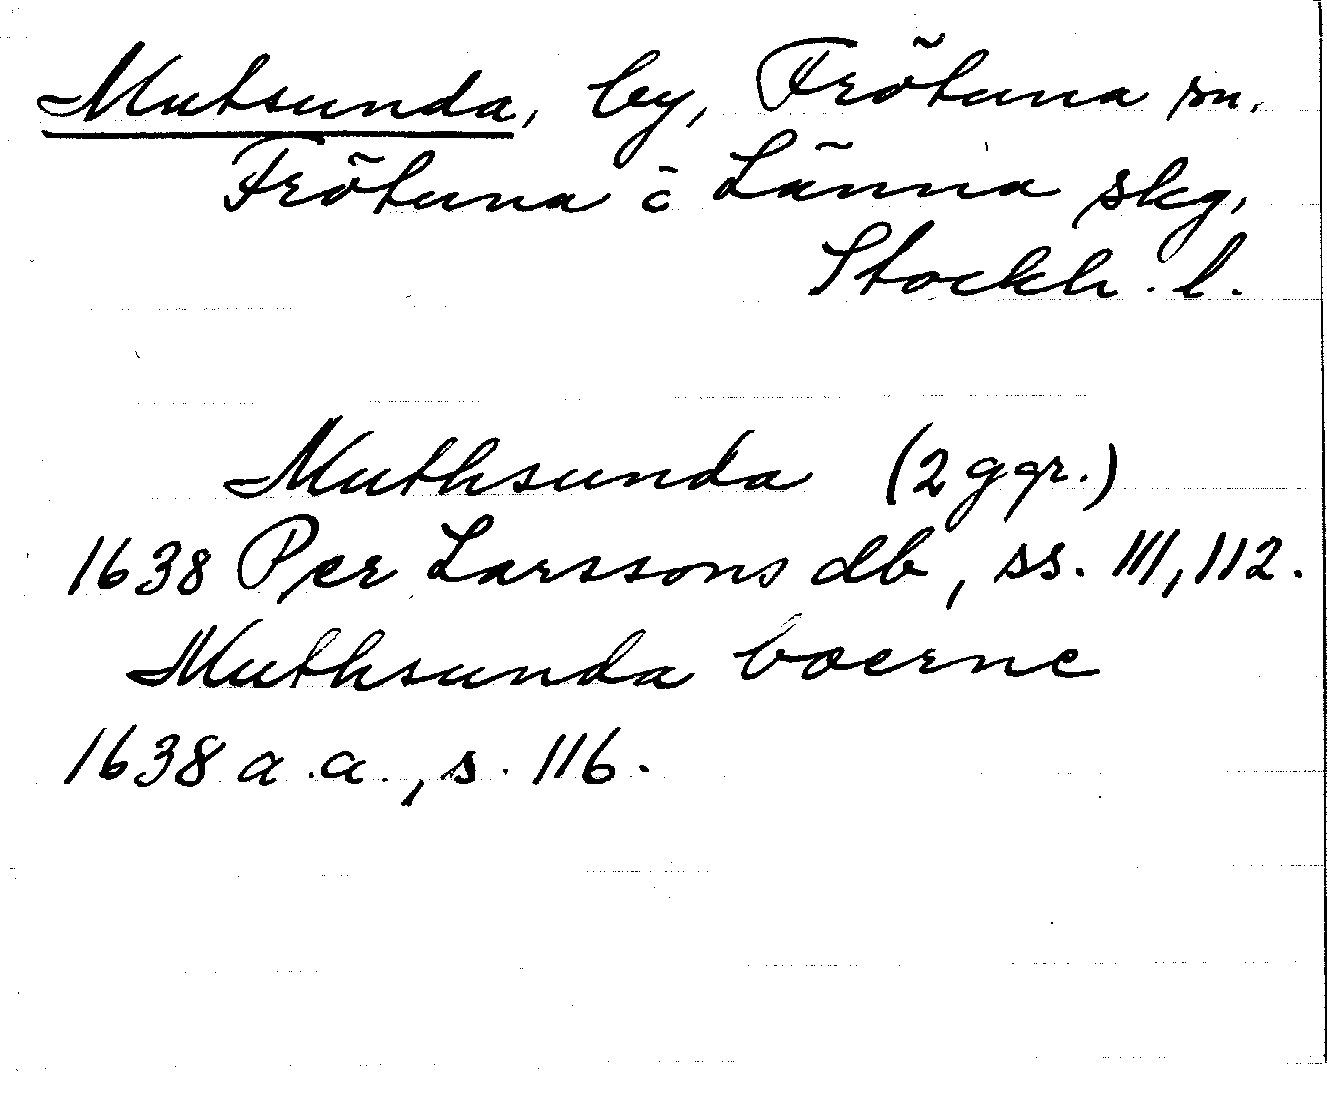 Mutsunda, by, Frötuna sn,
Frötuna o Länna skg,
Stockh. l.
Muthsunda (2 ggr.)
1638 Per Larssons db, ss. 111, 112.
Muthsunda boerne
1638 a.a., s. 116.